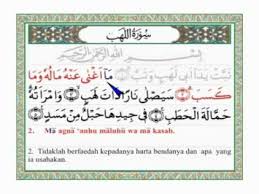 سُورَةُ اللَّهَبِ
بِسْمِ اللَّهِ الرَّحْمَٰنِ الرَّحِيمِ
تَبَّتْ يَدَا أَبِي لَهَبٍ وَتَبَّ ﴿١﴾ مَا أَغْنَىٰ عَنْهُ مَالُهُ وَمَا
كَسَبَ ﴿٢﴾ سَيَصْلَىٰ نَارًا ذَاتَ لَهَبٍ ﴿٣﴾ وَامْرَأَتُهُ
حَمَّالَةَ الْحَطَبِ ﴿٤﴾ فِي جِيدِهَا حَبْلٌ مِنْ مَسَدٍ ﴿٥﴾
2. Mā agnā 'anhu māluhū wa mā kasab.
2. Tidaklah berfaedah kepadanya harta bendanya dan apa yang
ia usahakan.